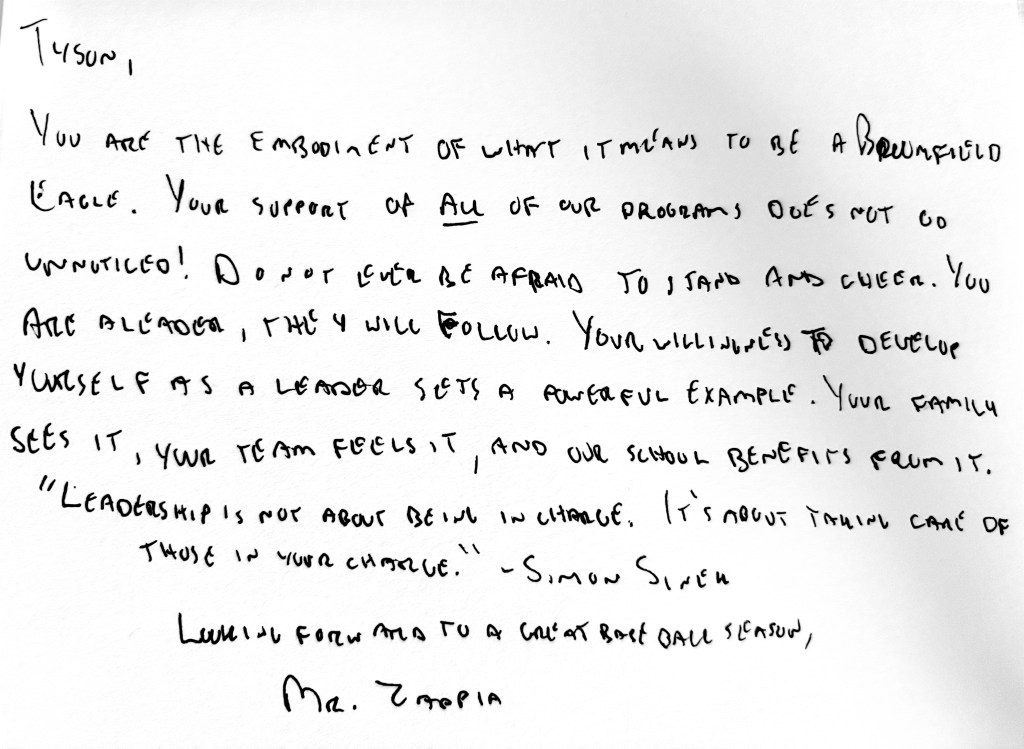 TYSON,
YOU ARE THE EMBODIMENT OF WHAT IT MEANS TO BE A BROOMFIELD
EAGLE. YOUR SUPPORT OF ALL OF OUR PROGRAMS DOES NOT GO
UNNOTICED! DO NOT EVER BE AFRAID TO STAND AND CHEER. YOU
ARE A LEADER, THEY WILL FOLLOW. YOUR WILLINGNESS TO DEVELOP
YOURSELF AS A LEADER SETS A POWERFUL EXAMPLE. YOUR FAMILY
SEES IT, YOUR TEAM FEELS IT, AND OUR SCHOOL BENEFITS FROM IT.
"LEADERSHIP IS NOT ABOUT BEING IN CHARGE. IT'S ABOUT TAKING CARE OF
THOSE IN YOUR CHARGE." - SIMON SINEK
LOOKING FORWARD TO A GREAT BASEBALL SEASON,
MR. ZAPPIA